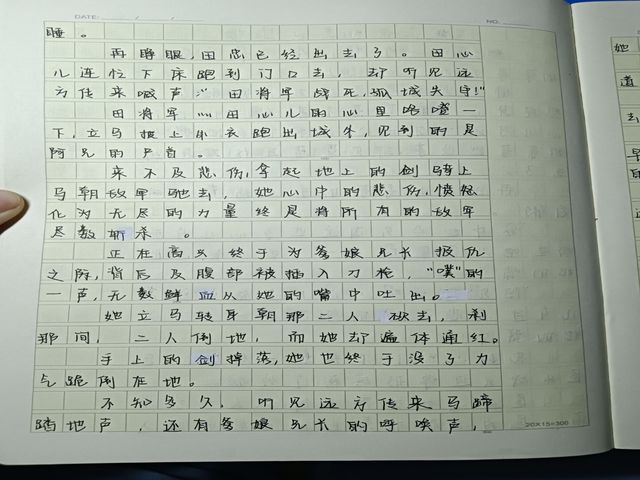 DATE: / /
NO.
睡。
再睁眼,田忽已经出去了。田心
儿连忙下床跑到门口去,却听见远
方传来喊声:“田将军战死,孤城失守!”
田将军 心田心儿的心里咯噔一
下,立马披上外衣跑出城外,见到的是
阿兄的尸首。
来不及悲伤,拿起地上的剑骑上
马朝敌军驰去,她心中的悲伤,愤怒
化为无尽的力量终是将所有的敌军
尽数斩杀。
正在高兴终于为爹娘兄长报仇
之际,背后及腹部被插入刀枪,“噗”的
一声,无数鲜血从她的嘴中吐出。
她立马转身朝那二人砍去,刹
那间,二人倒地,而她却遍体通红。
手上的剑掉落,她也终于没了力
气跪倒在地。
不知多久,听见远方传来马蹄
踏地声,还有爹娘兄长的呼唤声,
20X15=300
她
道
去
早